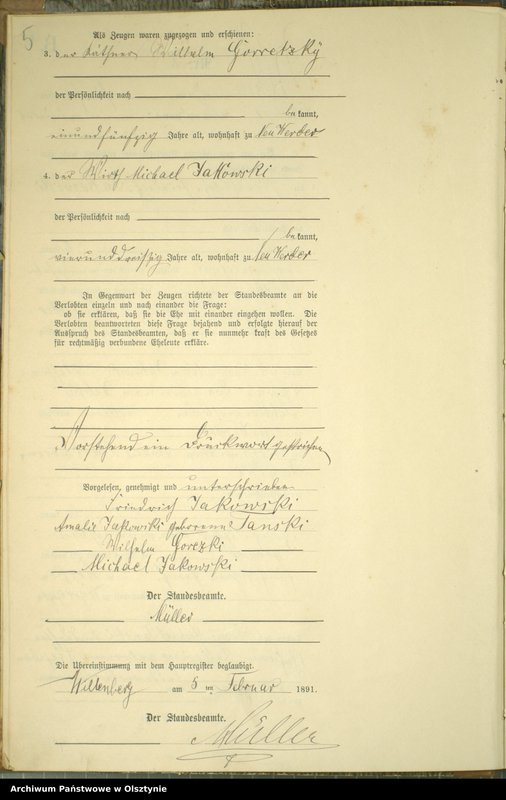 5
Als Zeugen waren zugezogen und erschienen:
3. der Käthner Wilhelm Gorretzky
der Persönlichkeit nach
bekannt,
einundfünfzig Jahre alt, wohnhaft zu Neu Werder
4. der Wirth Michael Jakowski
der Persönlichkeit nach
bekannt,
vierunddreißig Jahre alt, wohnhaft zu Neu Werder
In Gegenwart der Zeugen richtete der Standesbeamte an die
Verlobten einzeln und nach einander die Frage:
ob sie erklären, daß sie die Ehe mit einander eingehen wollen. Die
Verlobten beantworteten diese Frage bejahend und erfolgte hierauf der
Ausspruch des Standesbeamten, daß er sie nunmehr kraft des Gesetzes
für rechtmäßig verbundene Eheleute erkläre.
Vorstehend ein Druckwort gestrichen
Vorgelesen, genehmigt und unterschrieben
Friedrich Jakowski
Amalie Jakowski geborene Janski
Wilhelm Gorezki
Michael Jakowski
Der Standesbeamte.
Müller
Die Übereinstimmung mit dem Hauptregister beglaubigt.
Willenberg am 5 ten Februar 1891.
Der Standesbeamte.
Müller
Archiwum Państwowe w Olsztynie